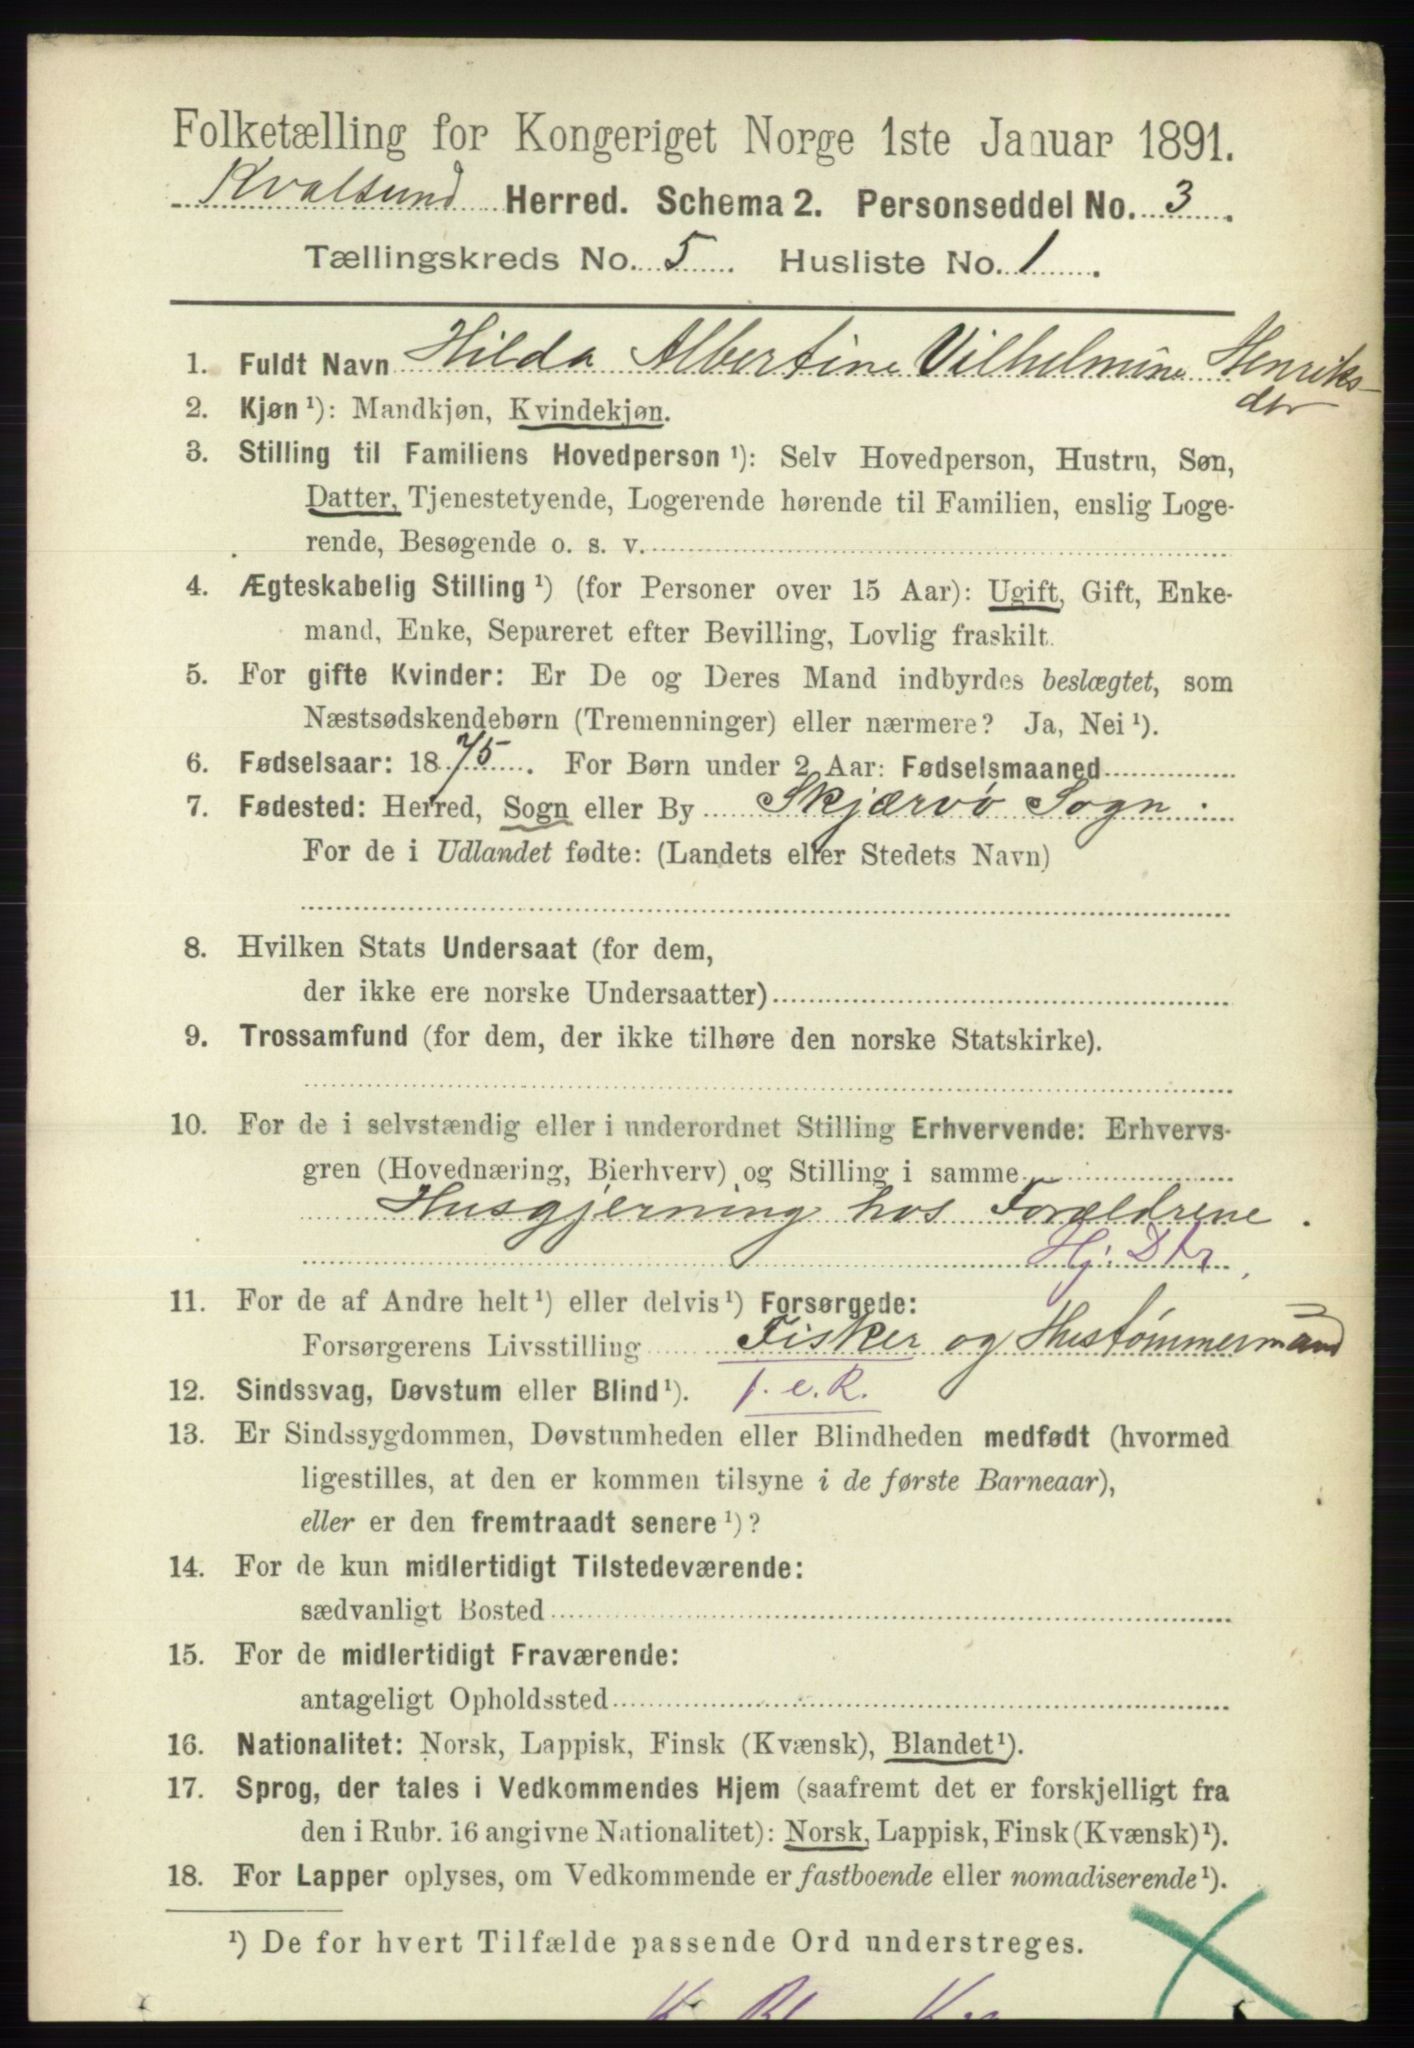 Folketælling for Kongeriget Norge 1ste Januar 1891.
Kvalsund Herred. Schema 2. Personseddel No. 3.
Tællingskreds No. 5. Husliste No. 1.
1. Fuldt Navn Hilda Albertine Vilhelmine Henriks-
dtr
2. Kjøn ¹): Mandkjøn, Kvindekjøn.
3. Stilling til Familiens Hovedperson ¹): Selv Hovedperson, Hustru, Søn,
Datter, Tjenestetyende, Logerende hørende til Familien, enslig Loge-
rende, Besøgende o. s. v.
4. Ægteskabelig Stilling ¹) (for Personer over 15 Aar): Ugift, Gift, Enke-
mand, Enke, Separeret efter Bevilling, Lovlig fraskilt.
5. For gifte Kvinder: Er De og Deres Mand indbyrdes beslægtet, som
Næstsødskendebørn (Tremenninger) eller nærmere? Ja, Nei ¹).
6. Fødselsaar: 1875. For Børn under 2 Aar: Fødselsmaaned
7. Fødested: Herred, Sogn eller By Skjærvø Sogn.
For de i Udlandet fødte: (Landets eller Stedets Navn)
8. Hvilken Stats Undersaat (for dem,
der ikke ere norske Undersaatter)
9. Trossamfund (for dem, der ikke tilhøre den norske Statskirke).
10. For de i selvstændig eller i underordnet Stilling Erhvervende: Erhvervs-
gren (Hovednæring, Bierhverv) og Stilling i samme
Husgjerning hos Forældrene.
Hj. Dtr.
11. For de af Andre helt ¹) eller delvis ¹) Forsørgede:
Forsørgerens Livsstilling Fisker og Hustømmermand
12. Sindssvag, Døvstum eller Blind ¹). f. e. R.
13. Er Sindssygdommen, Døvstumheden eller Blindheden medfødt (hvormed
ligestilles, at den er kommen tilsyne i de første Barneaar),
eller er den fremtraadt senere ¹)?
14. For de kun midlertidigt Tilstedeværende:
sædvanligt Bosted
15. For de midlertidigt Fraværende:
antageligt Opholdssted
16. Nationalitet: Norsk, Lappisk, Finsk (Kvænsk), Blandet ¹).
17. Sprog, der tales i Vedkommendes Hjem (saafremt det er forskjelligt fra
den i Rubr. 16 angivne Nationalitet): Norsk, Lappisk, Finsk (Kvænsk) ¹).
18. For Lapper oplyses, om Vedkommende er fastboende eller nomadiserende ¹).
¹) De for hvert Tilfælde passende Ord understreges.